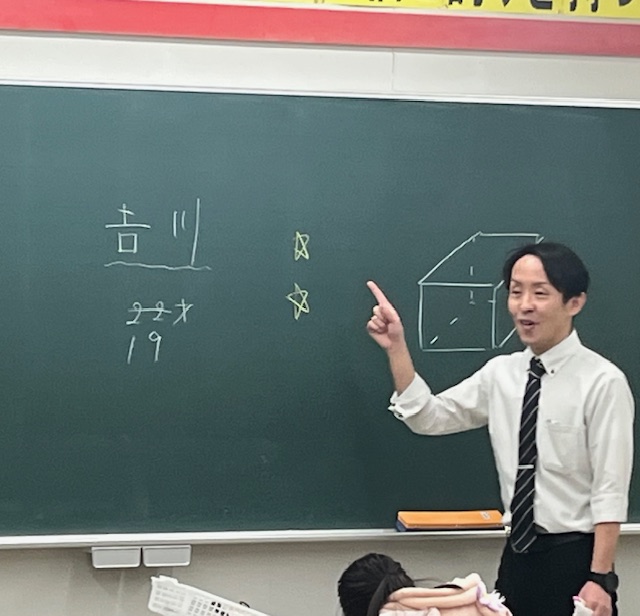 吉川
22才
19